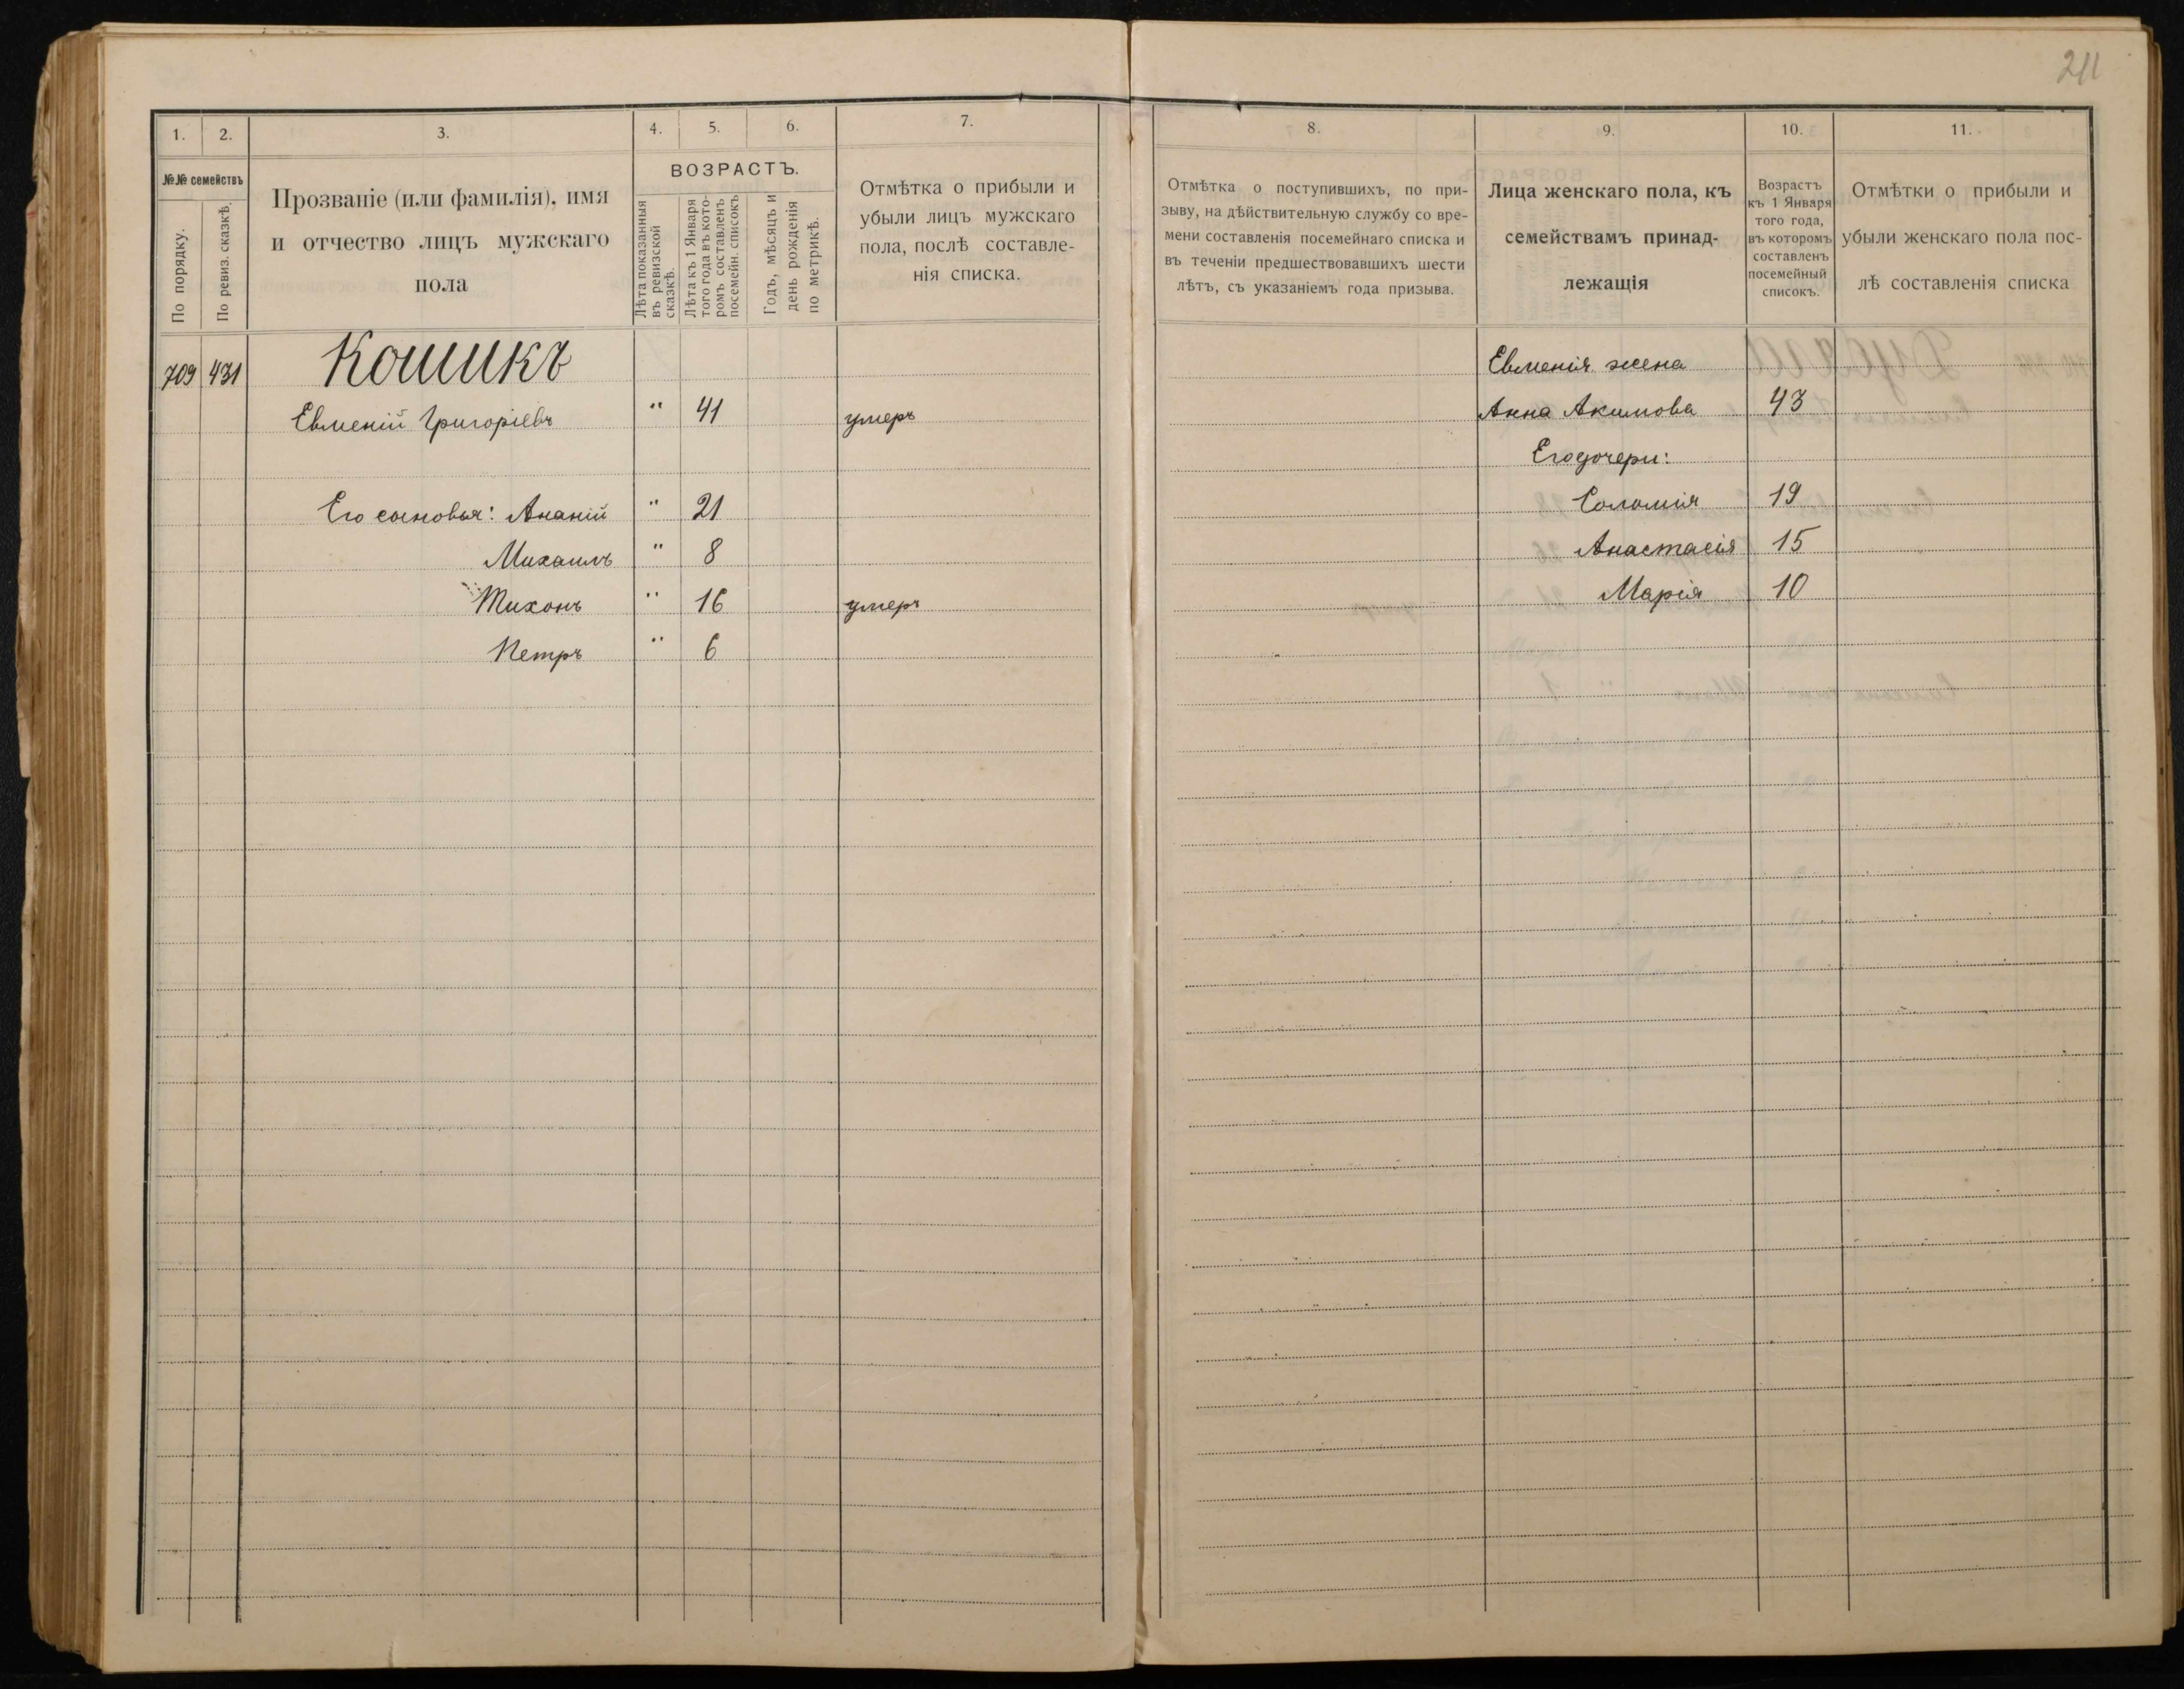 211
1. 2. 3. 4. 5. 6. 7.
№№ семействъ
По порядку.
По ревиз. сказкѣ.
Прозваніе (или фамилія), имя
и отчество лицъ мужскаго
пола
ВОЗРАСТЪ.
Лѣта показанныя
въ ревизской
сказкѣ.
Лѣта къ 1 Января
того года въ кото-
ромъ составленъ
посемейн. списокъ
Годъ, мѣсяцъ и
день рожденія
по метрикѣ.
Отмѣтка о прибыли и
убыли лицъ мужскаго
пола, послѣ составле-
нія списка.
709 431 Кошикъ
Евменій Григоріевъ " 41 умеръ
Его сыновья: Ананій " 21
Михаилъ " 8
Тихонъ " 16 умеръ
Петръ " 6
8. 9. 10. 11.
Отмѣтка о поступившихъ, по при-
зыву, на дѣйствительную службу со вре-
мени составленія посемейнаго списка и
въ теченіи предшествовавшихъ шести
лѣтъ, съ указаніемъ года призыва.
Лица женскаго пола, къ
семействамъ принад-
лежащія
Возрастъ
къ 1 Января
того года,
въ которомъ
составленъ
посемейный
списокъ.
Отмѣтки о прибыли и
убыли женскаго пола пос-
лѣ составленія списка
Евменія жена
Анна Акимова 43
Его дочери:
Соломія 19
Анастасія 15
Марія 10